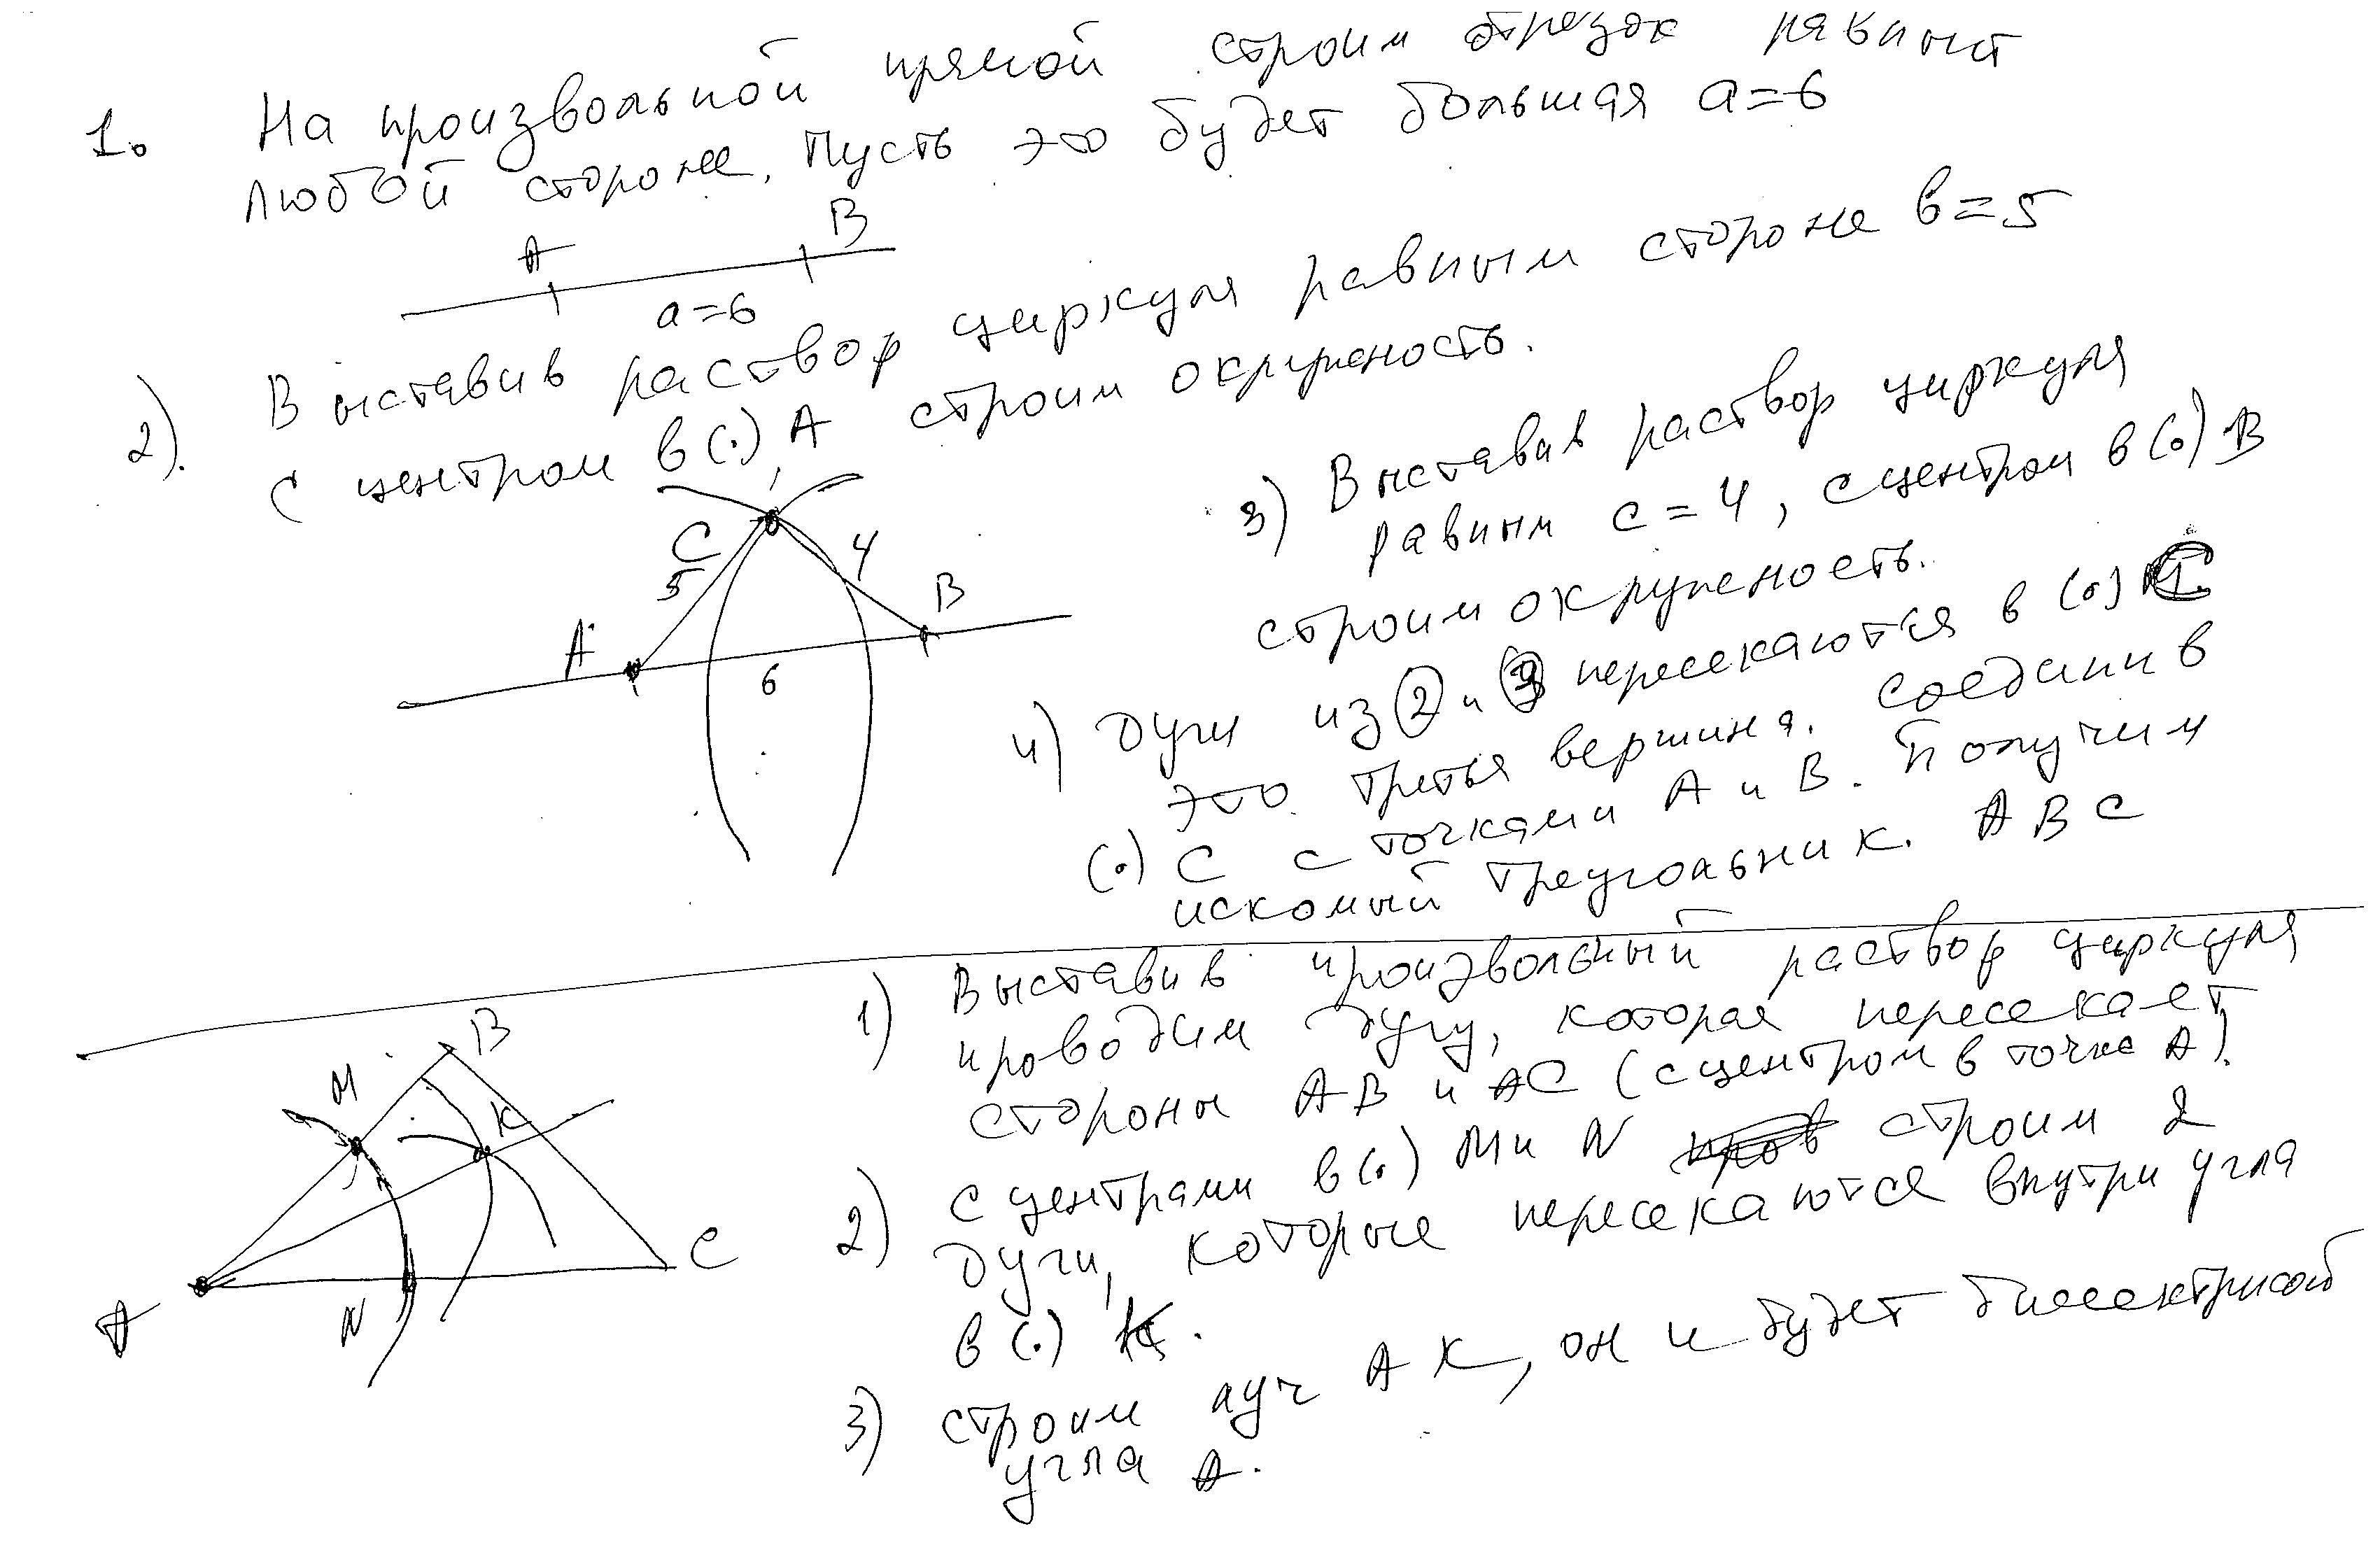 1. На произвольной прямой строим отрезок равный
любой стороне. Пусть это будет большая a=6
A B
a=6
2). Выставив раствор циркуля равным стороне b=5
с центром в (.) A строим окружность.
C 5 4
A 6 B
3) Выставив раствор циркуля
равным c=4, с центром в (.) B
строим окружность.
4) Дуги из 2 и 3 пересекаются в (.) C
это третья вершина. Соединив
(.) C с точками A и B. Получим
искомый треугольник. ABC
1) Выставив произвольный раствор циркуля
проводим дугу, которая пересекает
стороны AB и AC (с центром в точке A).
2) С центрами в (.) M и N строим 2
дуги, которые пересекаются внутри угла
в (.) K.
3) Строим луч AK, он и будет биссектрисой
угла A.
B
M
K
C
A N